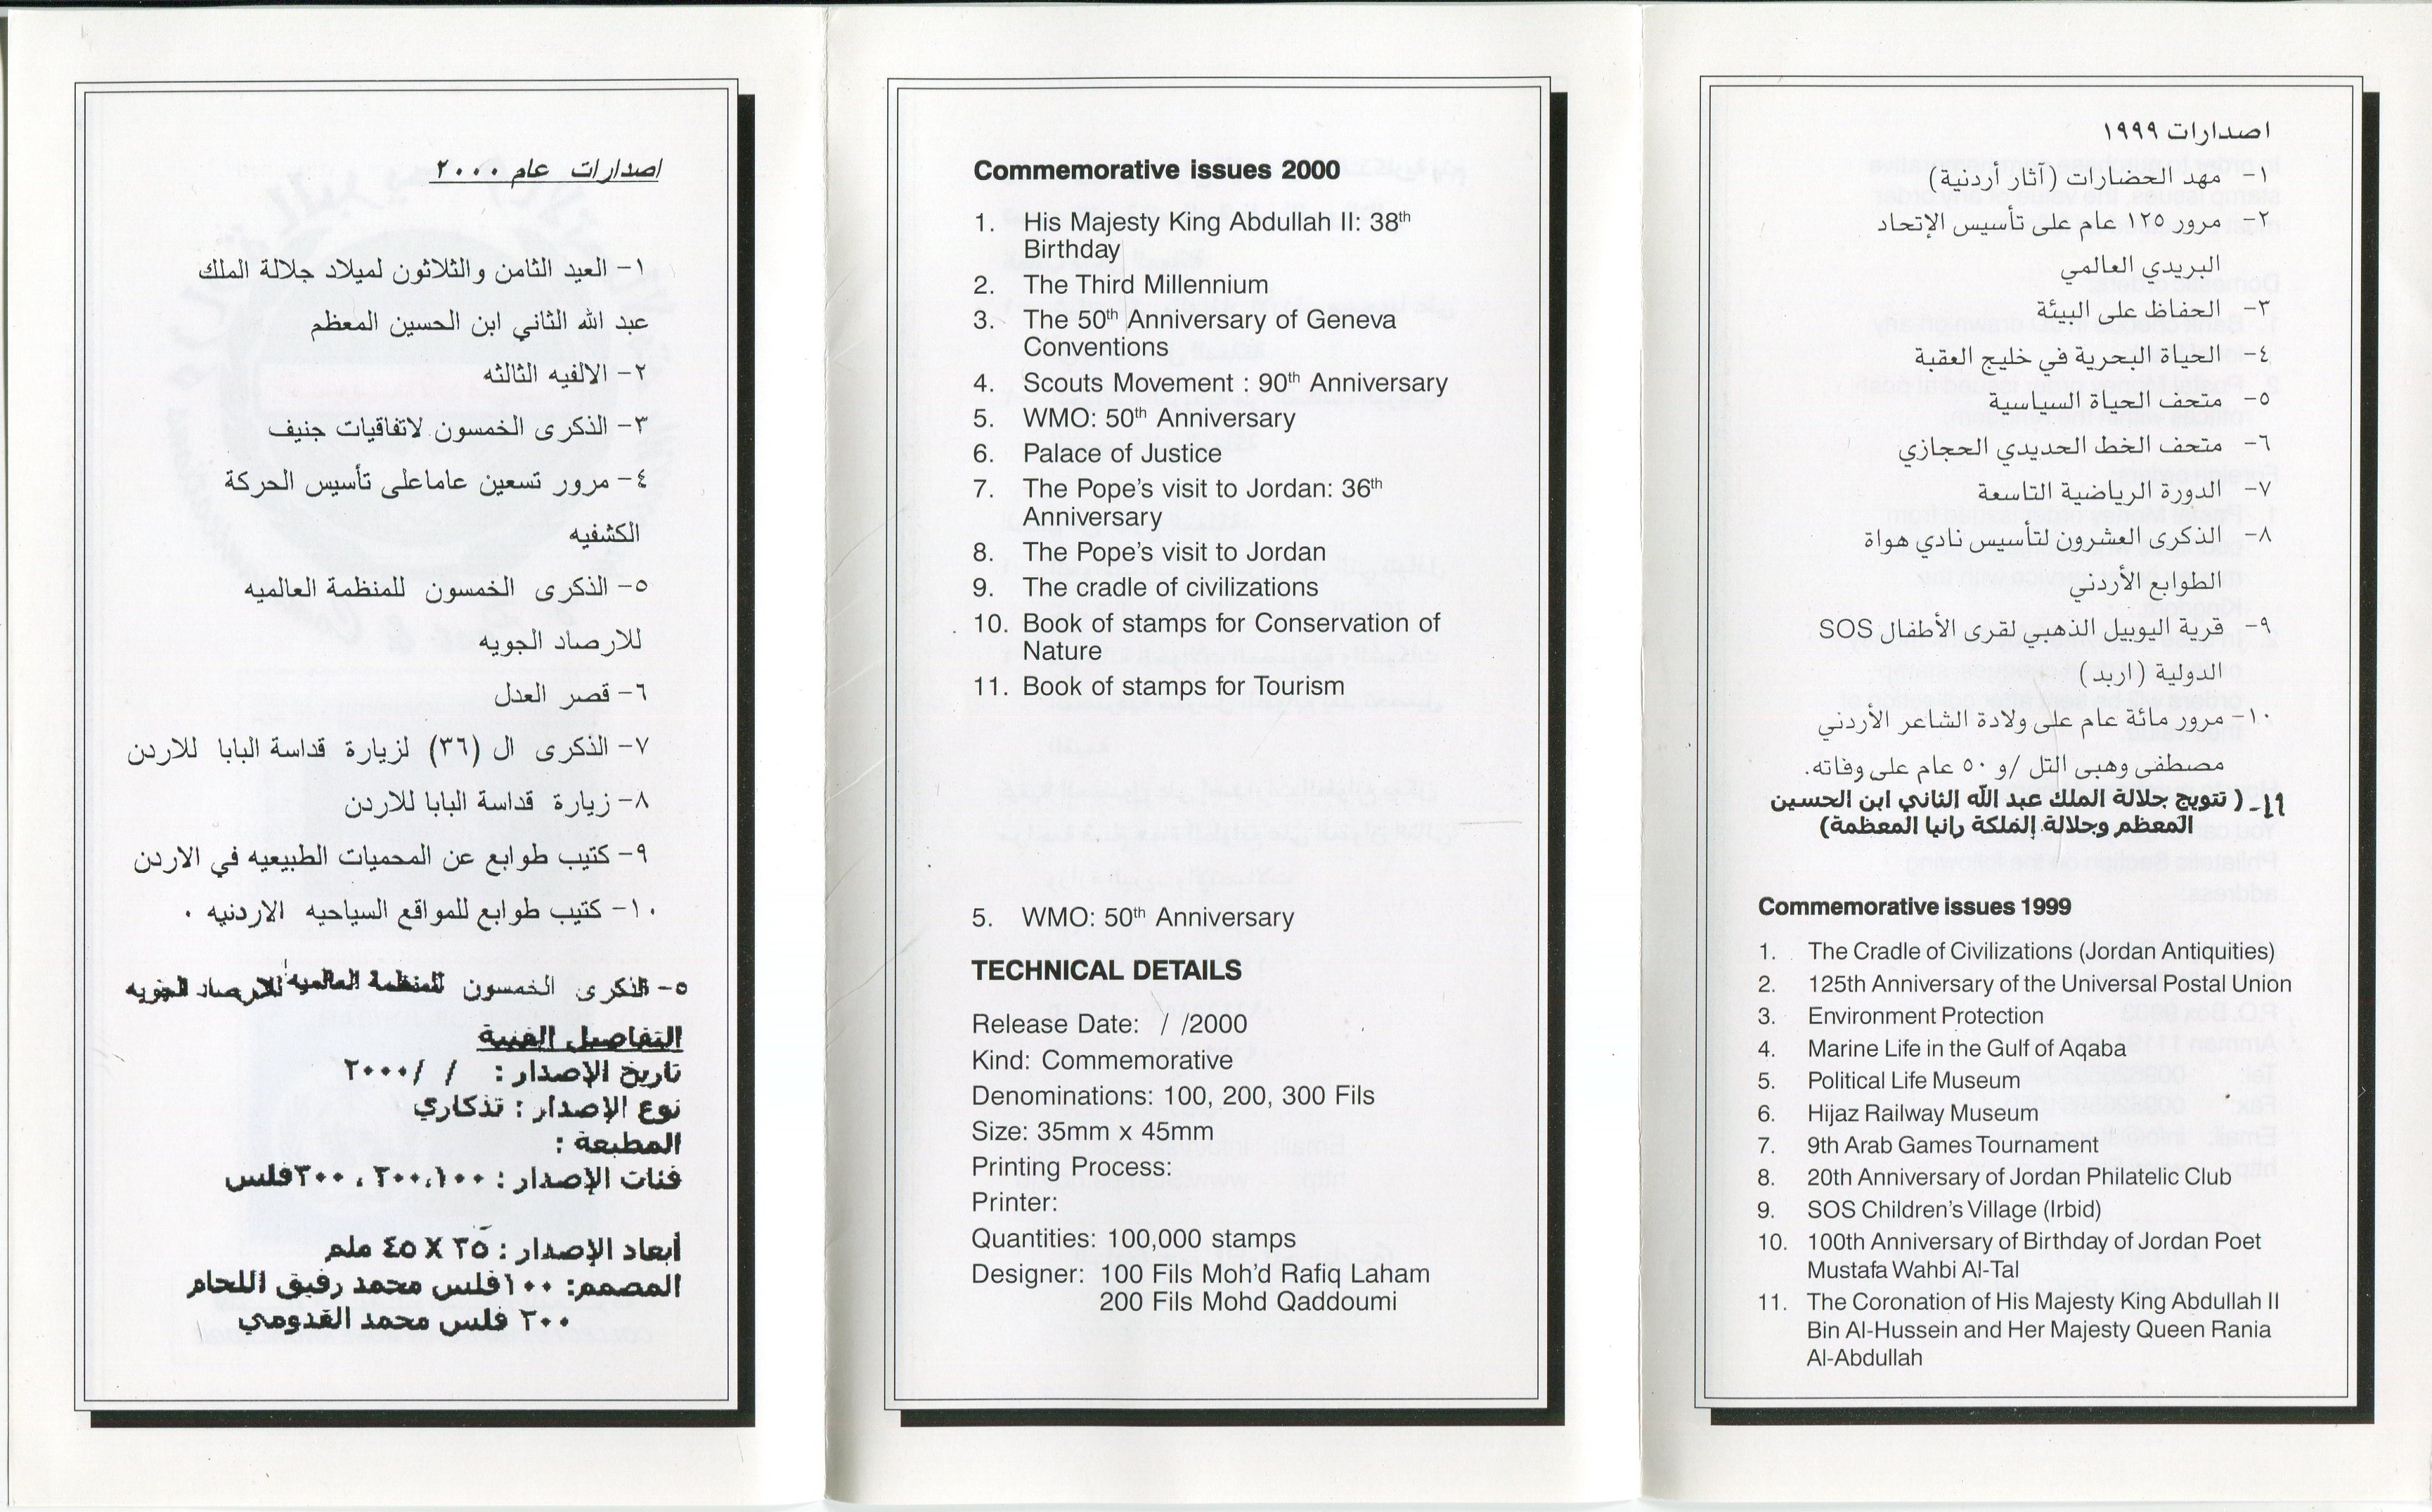 اصدارات عام ٢٠٠٠
١- العيد الثامن والثلاثون لميلاد جلالة الملك
عبد الله الثاني ابن الحسين المعظم
٢- الالفيه الثالثه
٣- الذكرى الخمسون لاتفاقيات جنيف
٤- مرور تسعين عاماعلى تأسيس الحركة
الكشفيه
٥- الذكرى الخمسون للمنظمة العالميه
للارصاد الجويه
٦- قصر العدل
٧- الذكرى ال (٣٦) لزيارة قداسة البابا للاردن
٨- زيارة قداسة البابا للاردن
٩- كتيب طوابع عن المحميات الطبيعيه في الاردن
١٠- كتيب طوابع للمواقع السياحيه الاردنيه ٠
٥- الذكرى الخمسون للمنظمة العالميه للارصاد الجويه
التفاصيل الفنية
تاريخ الإصدار : / /٢٠٠٠
نوع الإصدار : تذكاري
المطبعة :
فئات الإصدار : ١٠٠،٢٠٠ ، ٣٠٠فلس
أبعاد الإصدار : ٣٥ X ٤٥ ملم
المصمم: ١٠٠فلس محمد رفيق اللحام
٢٠٠ فلس محمد القدومي
Commemorative issues 2000
1. His Majesty King Abdullah II: 38th
Birthday
2. The Third Millennium
3. The 50th Anniversary of Geneva
Conventions
4. Scouts Movement : 90th Anniversary
5. WMO: 50th Anniversary
6. Palace of Justice
7. The Pope's visit to Jordan: 36th
Anniversary
8. The Pope's visit to Jordan
9. The cradle of civilizations
10. Book of stamps for Conservation of
Nature
11. Book of stamps for Tourism
5. WMO: 50th Anniversary
TECHNICAL DETAILS
Release Date: / /2000
Kind: Commemorative
Denominations: 100, 200, 300 Fils
Size: 35mm x 45mm
Printing Process:
Printer:
Quantities: 100,000 stamps
Designer: 100 Fils Moh'd Rafiq Laham
200 Fils Mohd Qaddoumi
اصدارات ١٩٩٩
١- مهد الحضارات (آثار أردنية)
٢- مرور ١٢٥ عام على تأسيس الإتحاد
البريدي العالمي
٣- الحفاظ على البيئة
٤- الحياة البحرية في خليج العقبة
٥- متحف الحياة السياسية
٦- متحف الخط الحديدي الحجازي
٧- الدورة الرياضية التاسعة
٨- الذكرى العشرون لتأسيس نادي هواة
الطوابع الأردني
٩- قرية اليوبيل الذهبي لقرى الأطفال SOS
الدولية (اربد)
١٠- مرور مائة عام على ولادة الشاعر الأردني
مصطفى وهبى التل /و ٥٠ عام على وفاته.
١١- ( تتويج جلالة الملك عبد الله الثاني ابن الحسين
المعظم وجلالة الملكة رانيا المعظمة)
Commemorative issues 1999
1. The Cradle of Civilizations (Jordan Antiquities)
2. 125th Anniversary of the Universal Postal Union
3. Environment Protection
4. Marine Life in the Gulf of Aqaba
5. Political Life Museum
6. Hijaz Railway Museum
7. 9th Arab Games Tournament
8. 20th Anniversary of Jordan Philatelic Club
9. SOS Children's Village (Irbid)
10. 100th Anniversary of Birthday of Jordan Poet
Mustafa Wahbi Al-Tal
11. The Coronation of His Majesty King Abdullah II
Bin Al-Hussein and Her Majesty Queen Rania
Al-Abdullah